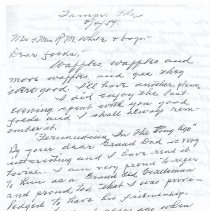 Tampa, Fla
9/10/59.
Mr & Mrs P. M. White & boys.
Dear folks,
Waffles waffles and
more waffles and gee they
were good. I'll have another, please,
I did enjoy the last
evening spent with you good
folks and I shall always rem
ember it.
"Fernandina In The King
By your dear Grand Dad is very
interesting and I have read it
twice. I am proud to refer
to him as a Friend and Gentleman
and proud too that I was privi-
ledged to have his friendship.
years ago when